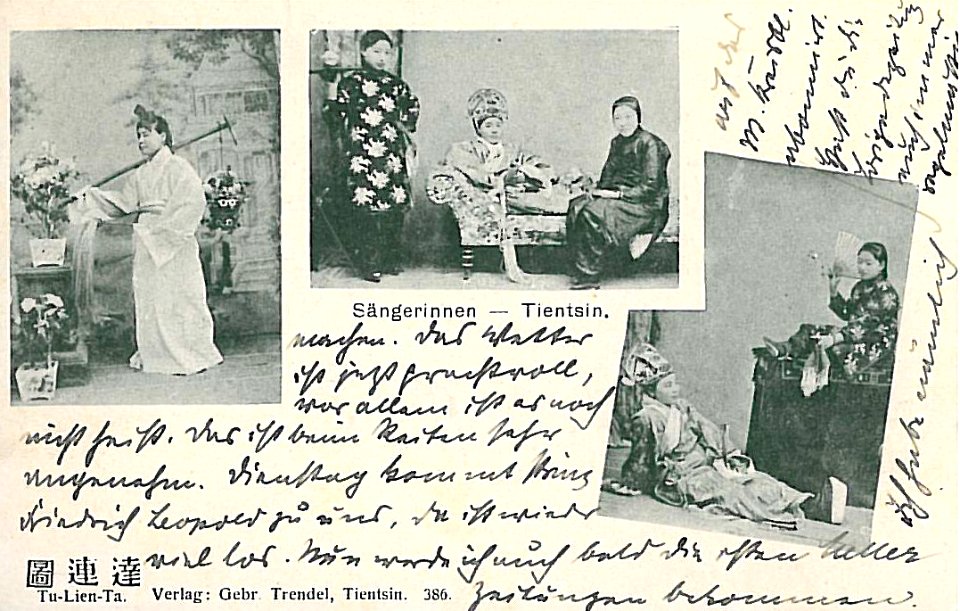 Sängerinnen — Tientsin.
machen. Das Wetter
ist jetzt prachtvoll,
vor allem ist es noch
nicht heiß. Das ist beim Reiten sehr
angenehm. Dienstag kommt Prinz
Friedrich Leopold zu uns, da ist wieder
viel los. Nun werde ich auch bald die ersten
Zeitungen bekommen.
auf der
M.
abonniert.
Hast du die
auch immer
Ich habe nämlich
圖連達
Tu-Lien-Ta. Verlag: Gebr. Trendel, Tientsin. 386.